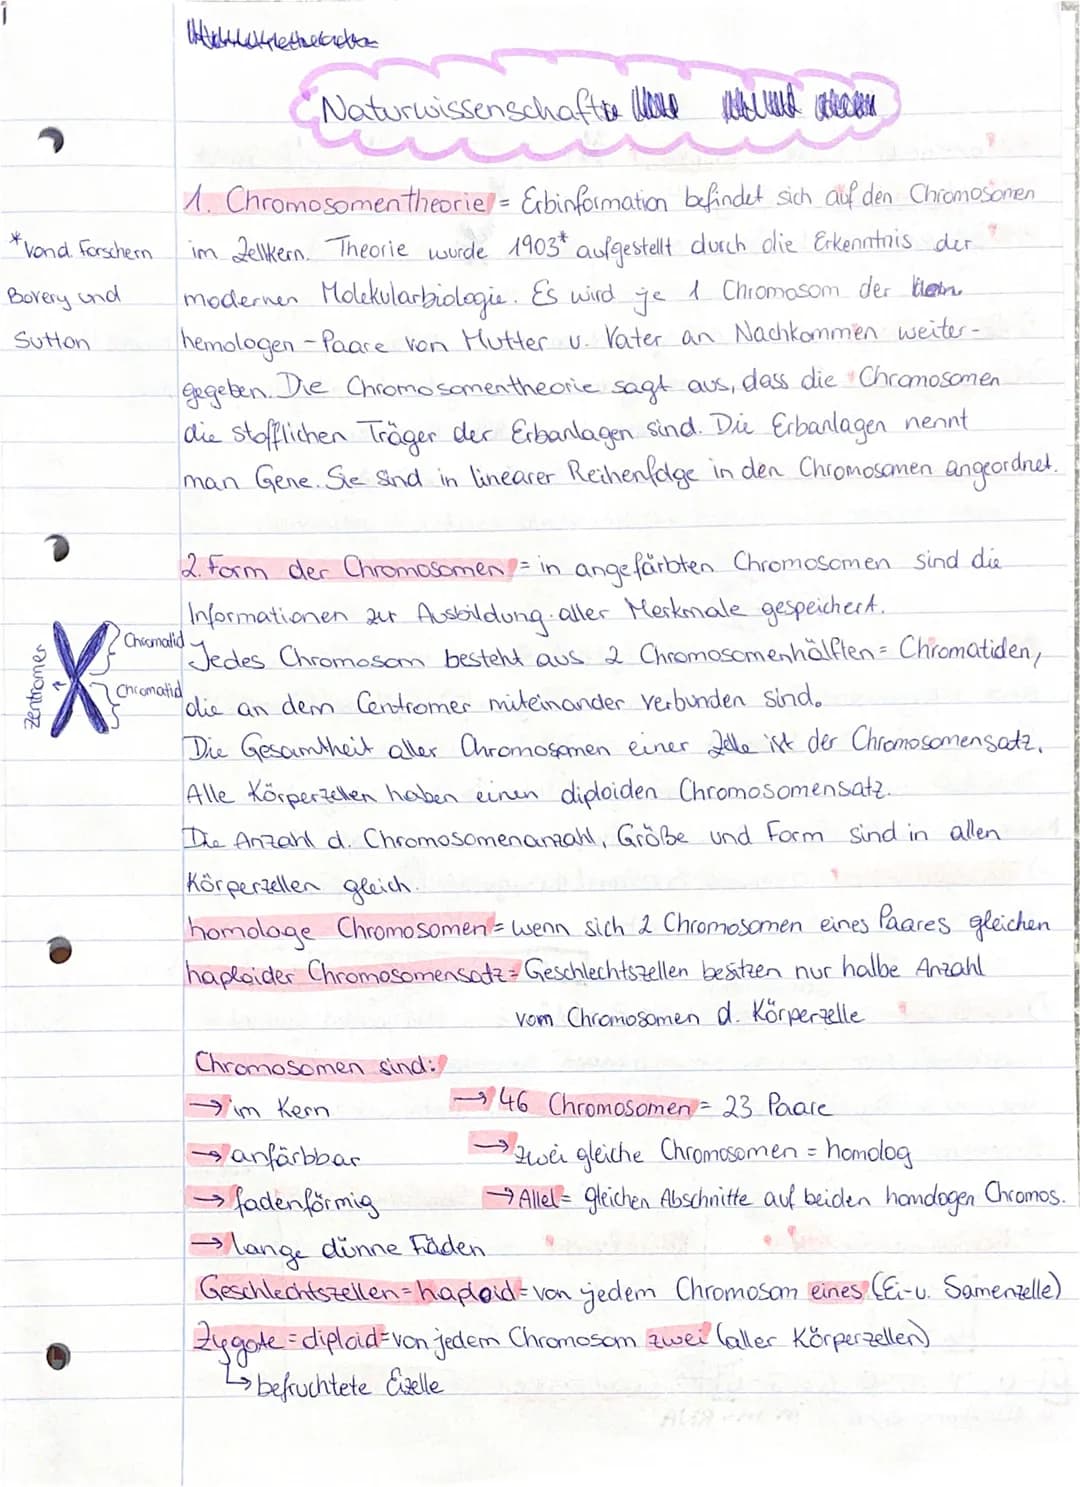 Naturwissenschafte
1. Chromosomentheorie = Erbinformation befindet sich auf den Chromosonen
im Zellkern. Theorie wurde 1903* aufgestellt durch die Erkenntnis der
modernen Molekularbiologie. Es wird je 1 Chromosom der
hemologen-Paare von Mutter u. Vater an Nachkommen weiter-
gegeben. Die Chromosomentheorie sagt aus, dass die Chromosomen
die stofflichen Träger der Erbanlagen sind. Die Erbanlagen nennt
man Gene. Sie sind in linearer Reihenfolge in den Chromosomen angeordnet.
*von d. Forschern
Bovery und
Sutton
2. Form der Chromosomen = in angefärbten Chromosomen sind die
Informationen zur Ausbildung aller Merkmale gespeichert.
Jedes Chromosom besteht aus 2 Chromosomenhälften = Chromatiden,
die an dem Centromer miteinander verbunden sind.
Die Gesamtheit aller Chromosomen einer Zelle ist der Chromosomensatz.
Alle Körperzellen haben einen diploiden Chromosomensatz.
Die Anzahl d. Chromosomenanzahl, Größe und Form sind in allen
Körperzellen gleich.
Zentromer
Chromatid
Chromatid
homologe Chromosomen = wenn sich 2 Chromosomen eines Paares gleichen
haploider Chromosomensatz = Geschlechtszellen besitzen nur halbe Anzahl
vom Chromosomen d. Körperzelle
Chromosomen sind:
→ im Kern
→ anfärbbar
→ fadenförmig
→ lange dünne Fäden
→ 46 Chromosomen = 23 Paare
→ zwei gleiche Chromosomen = homolog
→ Allel = gleichen Abschnitte auf beiden homologen Chromos.
Geschlechtszellen = haploid = von jedem Chromosom eines (Ei-u. Samenzelle)
Zygote = diploid = von jedem Chromosom zwei (aller Körperzellen)
↳ befruchtete Eizelle